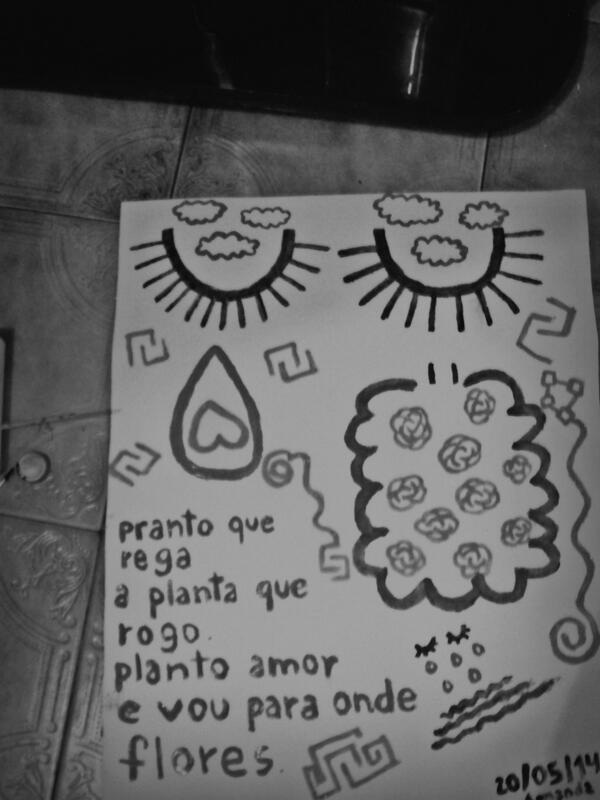 pranto que
rega
a planta que
rogo.
planto amor
e vou para onde
flores.
20/05/14
Amanda